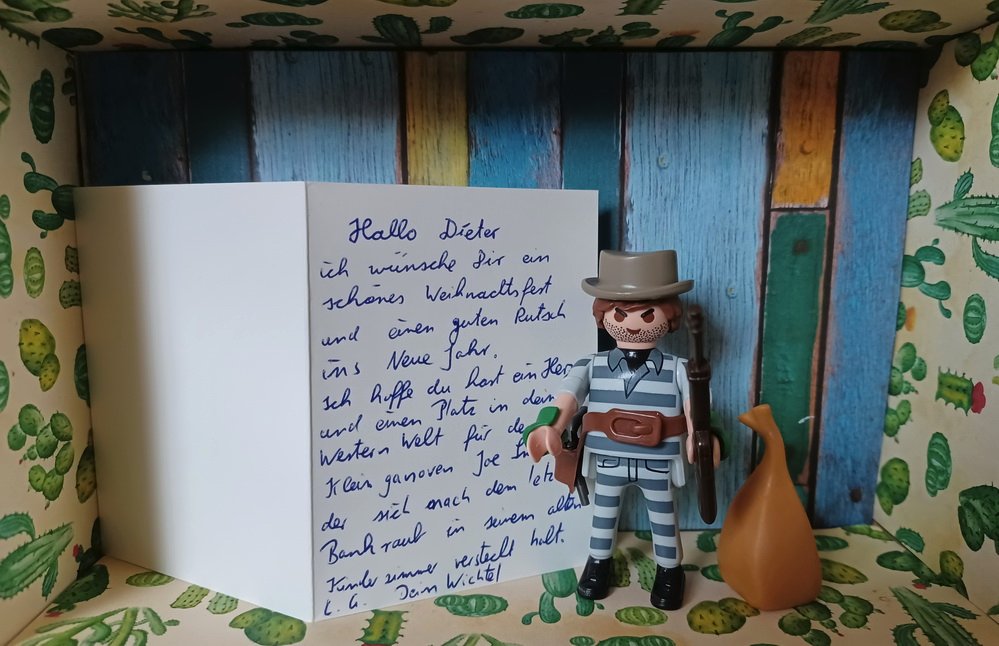 Hallo Dieter
ich wünsche Dir ein
schönes Weihnachtsfest
und einen guten Rutsch
ins Neue Jahr.
Ich hoffe du hast ein Her
und einen Platz in dein
Western Welt für de
Klein ganoven Joe
der sich nach dem letz
Bankraub in seinem alten
Kinderzimmer versteckt hält.
L. G. Dein Wichtel